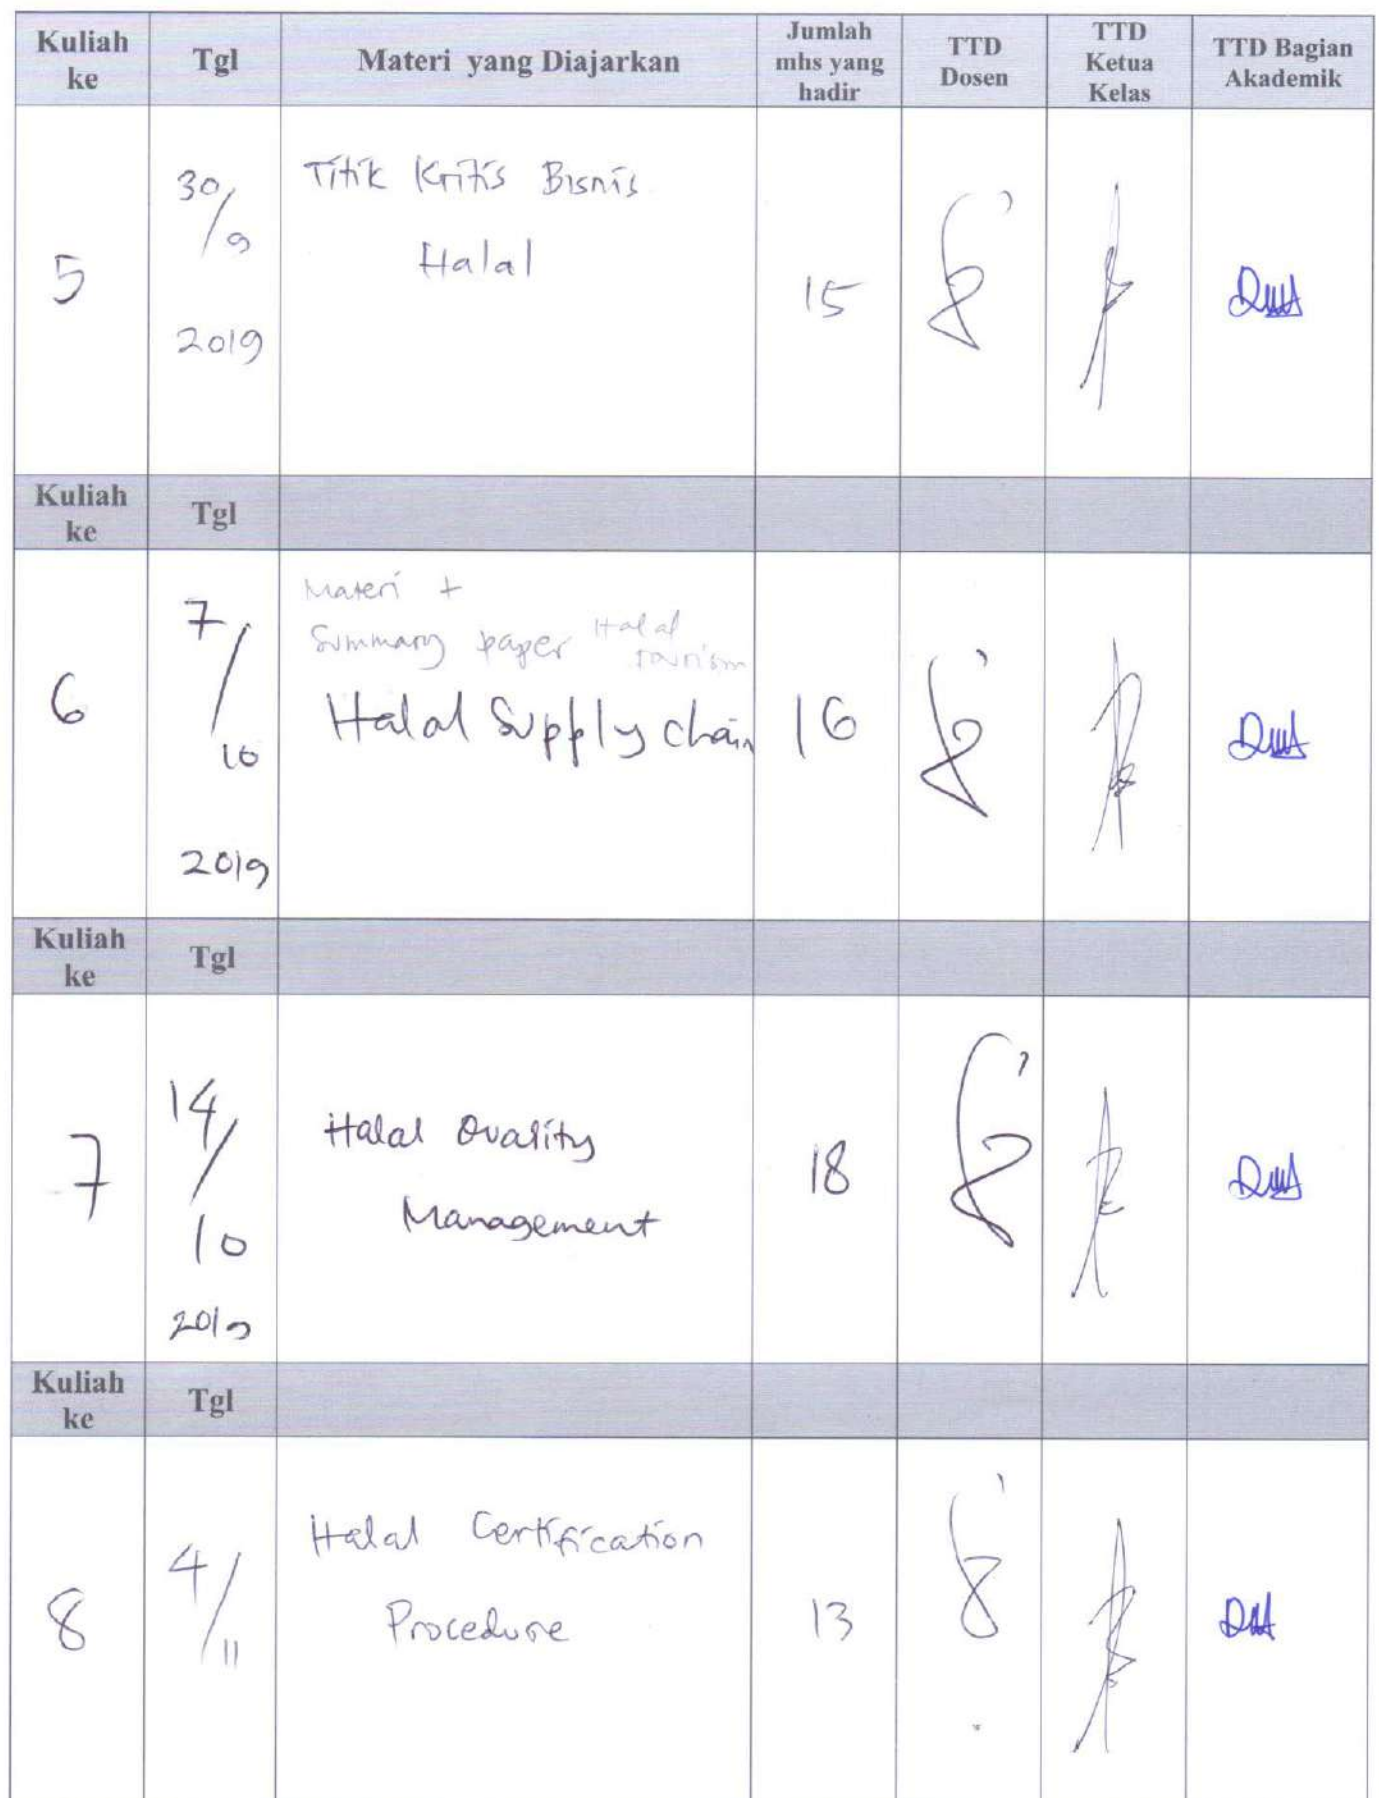 Kuliah ke Tgl Materi yang Diajarkan Jumlah mhs yang hadir TTD Dosen TTD Ketua Kelas TTD Bagian Akademik
5 30/9 2019 Titik Kritis Bisnis Halal 15
Kuliah ke Tgl
6 7/10 2019 Materi + Summary paper Halal tourism Halal Supply chain 16
Kuliah ke Tgl
7 14/10 2019 Halal Quality Management 18
Kuliah ke Tgl
8 4/11 Halal Certification Procedure 13